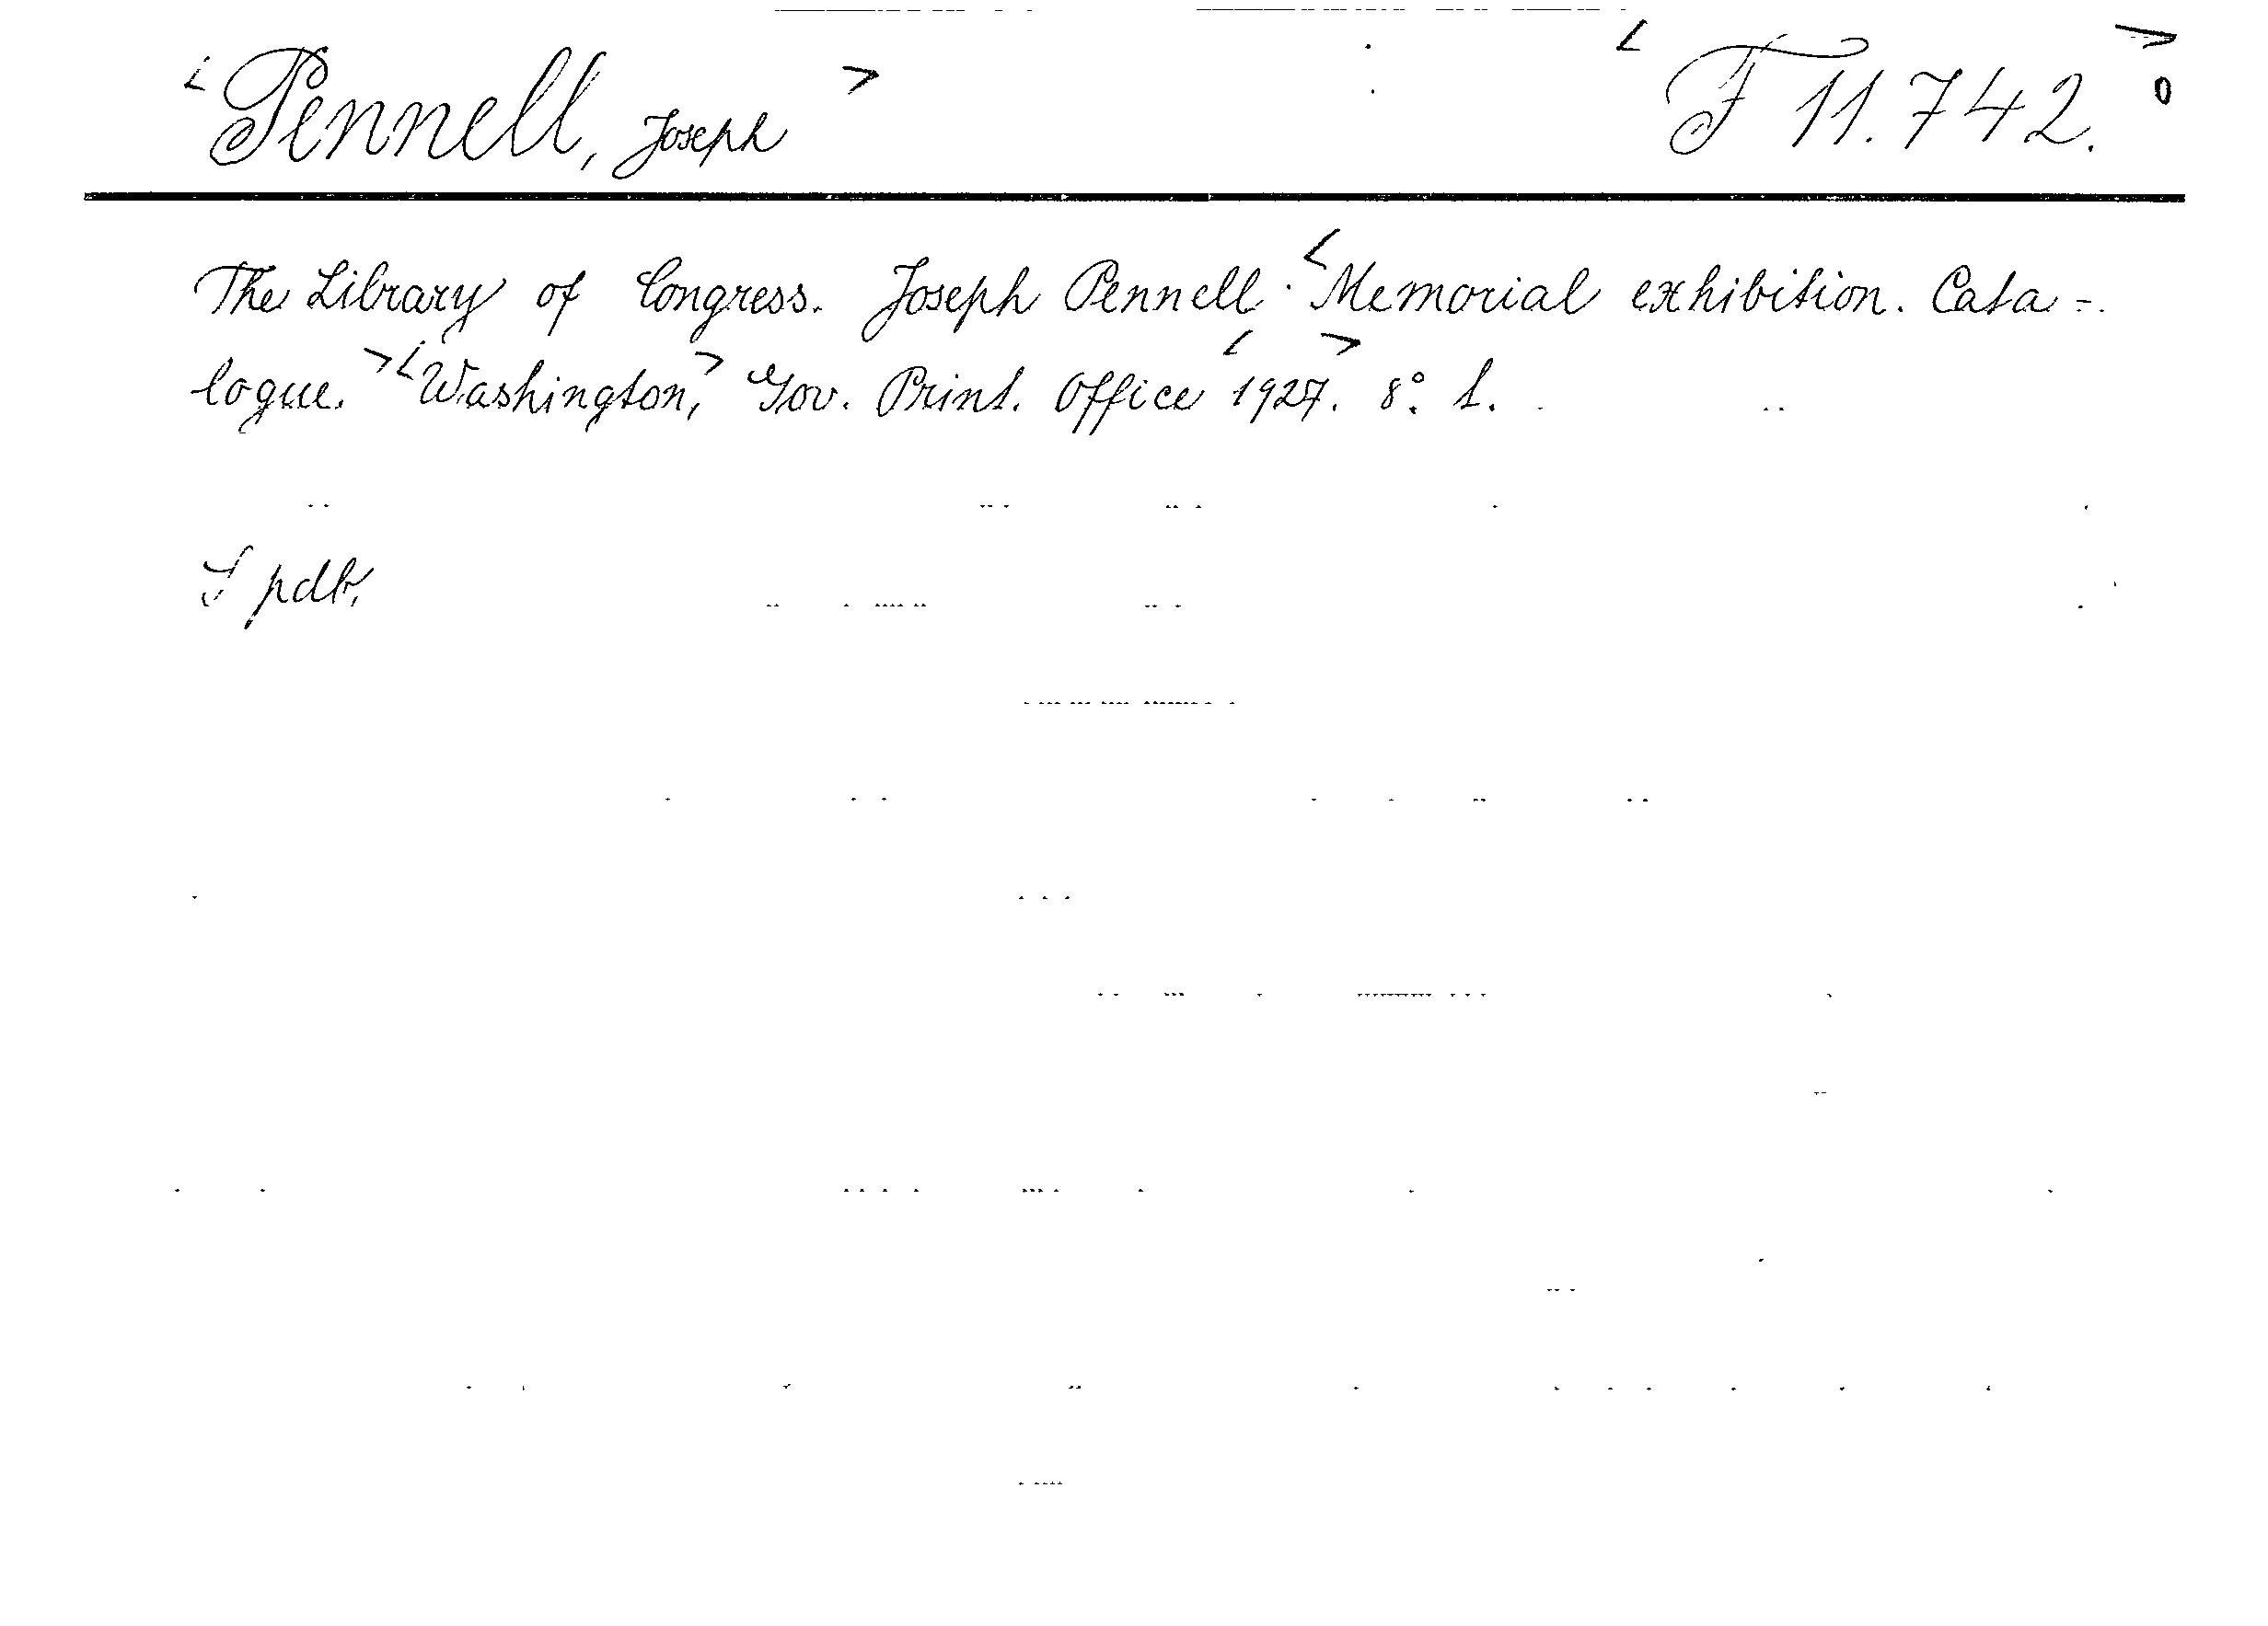 <Pennell, Joseph> <F 11.742.> 0
The Library of Congress. Joseph Pennell. <Memorial exhibition. Cata=
logue.> <Washington,> Gov. Print. Office <1927>. 8°.